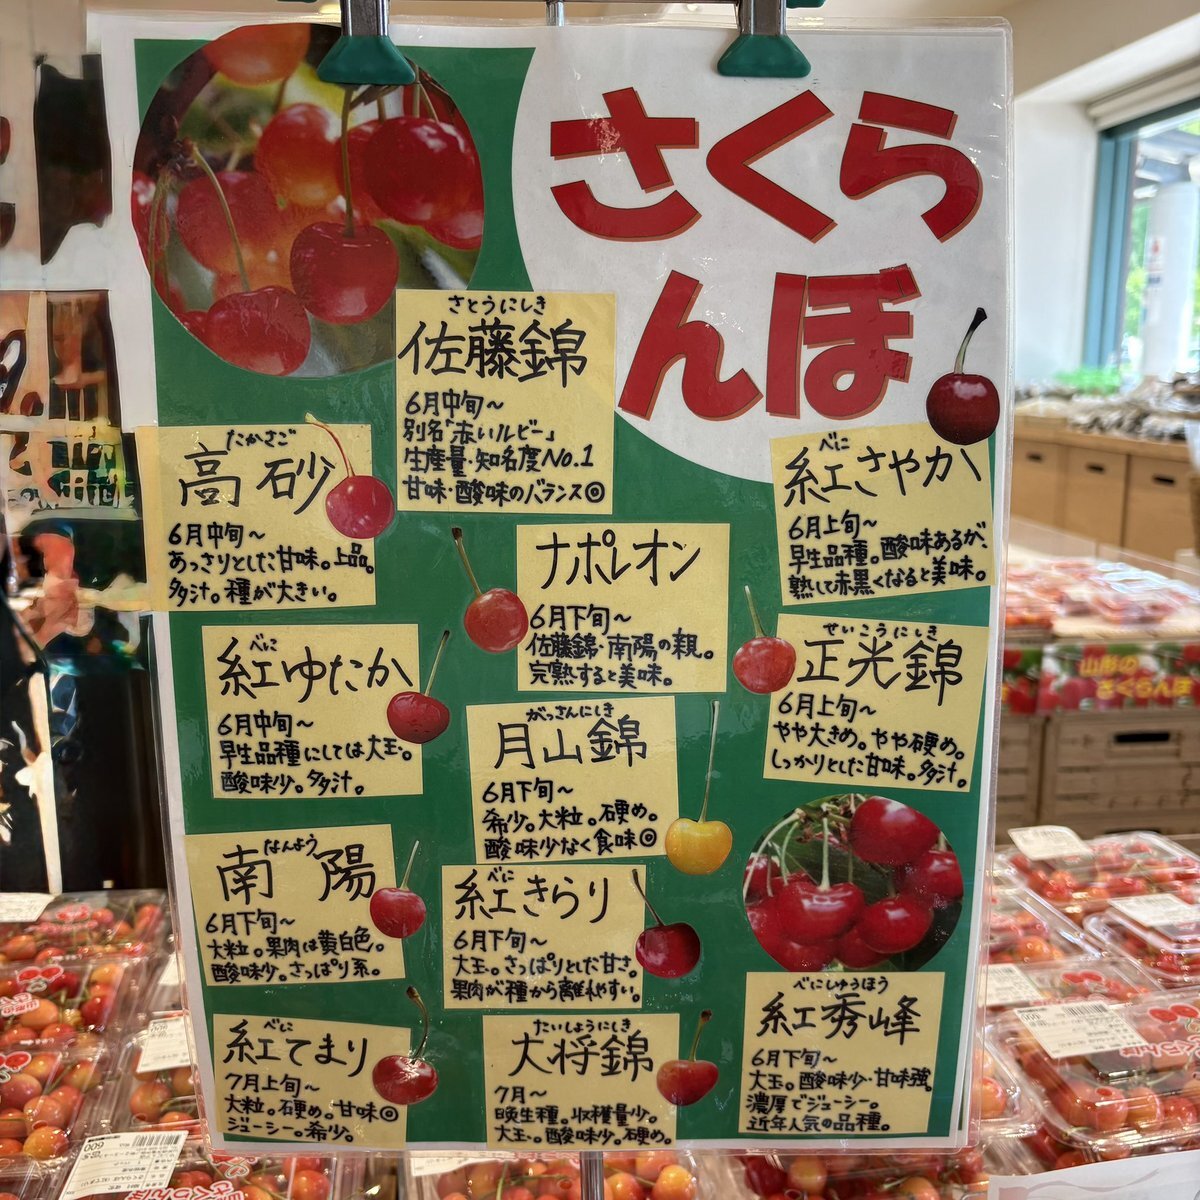 さくら
んぼ
さとうにしき
佐藤錦
6月中旬〜
別名「赤いルビー」
生産量・知名度No.1
甘味・酸味のバランス◎
たかさご
高砂
6月中旬〜
あっさりとした甘味。上品。
多汁。種が大きい。
べに
紅さやか
6月上旬〜
早生品種。酸味あるが、
熟して赤黒くなると美味。
ナポレオン
6月下旬〜
佐藤錦・南陽の親。
完熟すると美味。
べに
紅ゆたか
6月中旬〜
早生品種にしては大玉。
酸味少。多汁。
せいこうにしき
正光錦
6月上旬〜
やや大きめ。やや硬め。
しっかりとした甘味。多汁。
がっさんにしき
月山錦
6月下旬〜
希少。大粒。硬め。
酸味少なく食味◎
なんよう
南陽
6月下旬〜
大粒。果肉は黄白色。
酸味少。さっぱり系。
べに
紅きらり
6月下旬〜
大玉。さっぱりとした甘さ。
果肉が種から離れやすい。
べに
紅てまり
7月上旬〜
大粒。硬め。甘味◎
ジューシー。希少。
たいしょうにしき
大将錦
7月〜
晩生種。収穫量少。
大玉。酸味少。硬め。
べにしゅうほう
紅秀峰
6月下旬〜
大玉。酸味少・甘味強。
濃厚でジューシー。
近年人気の品種。
山形の
さくらんぼ
600